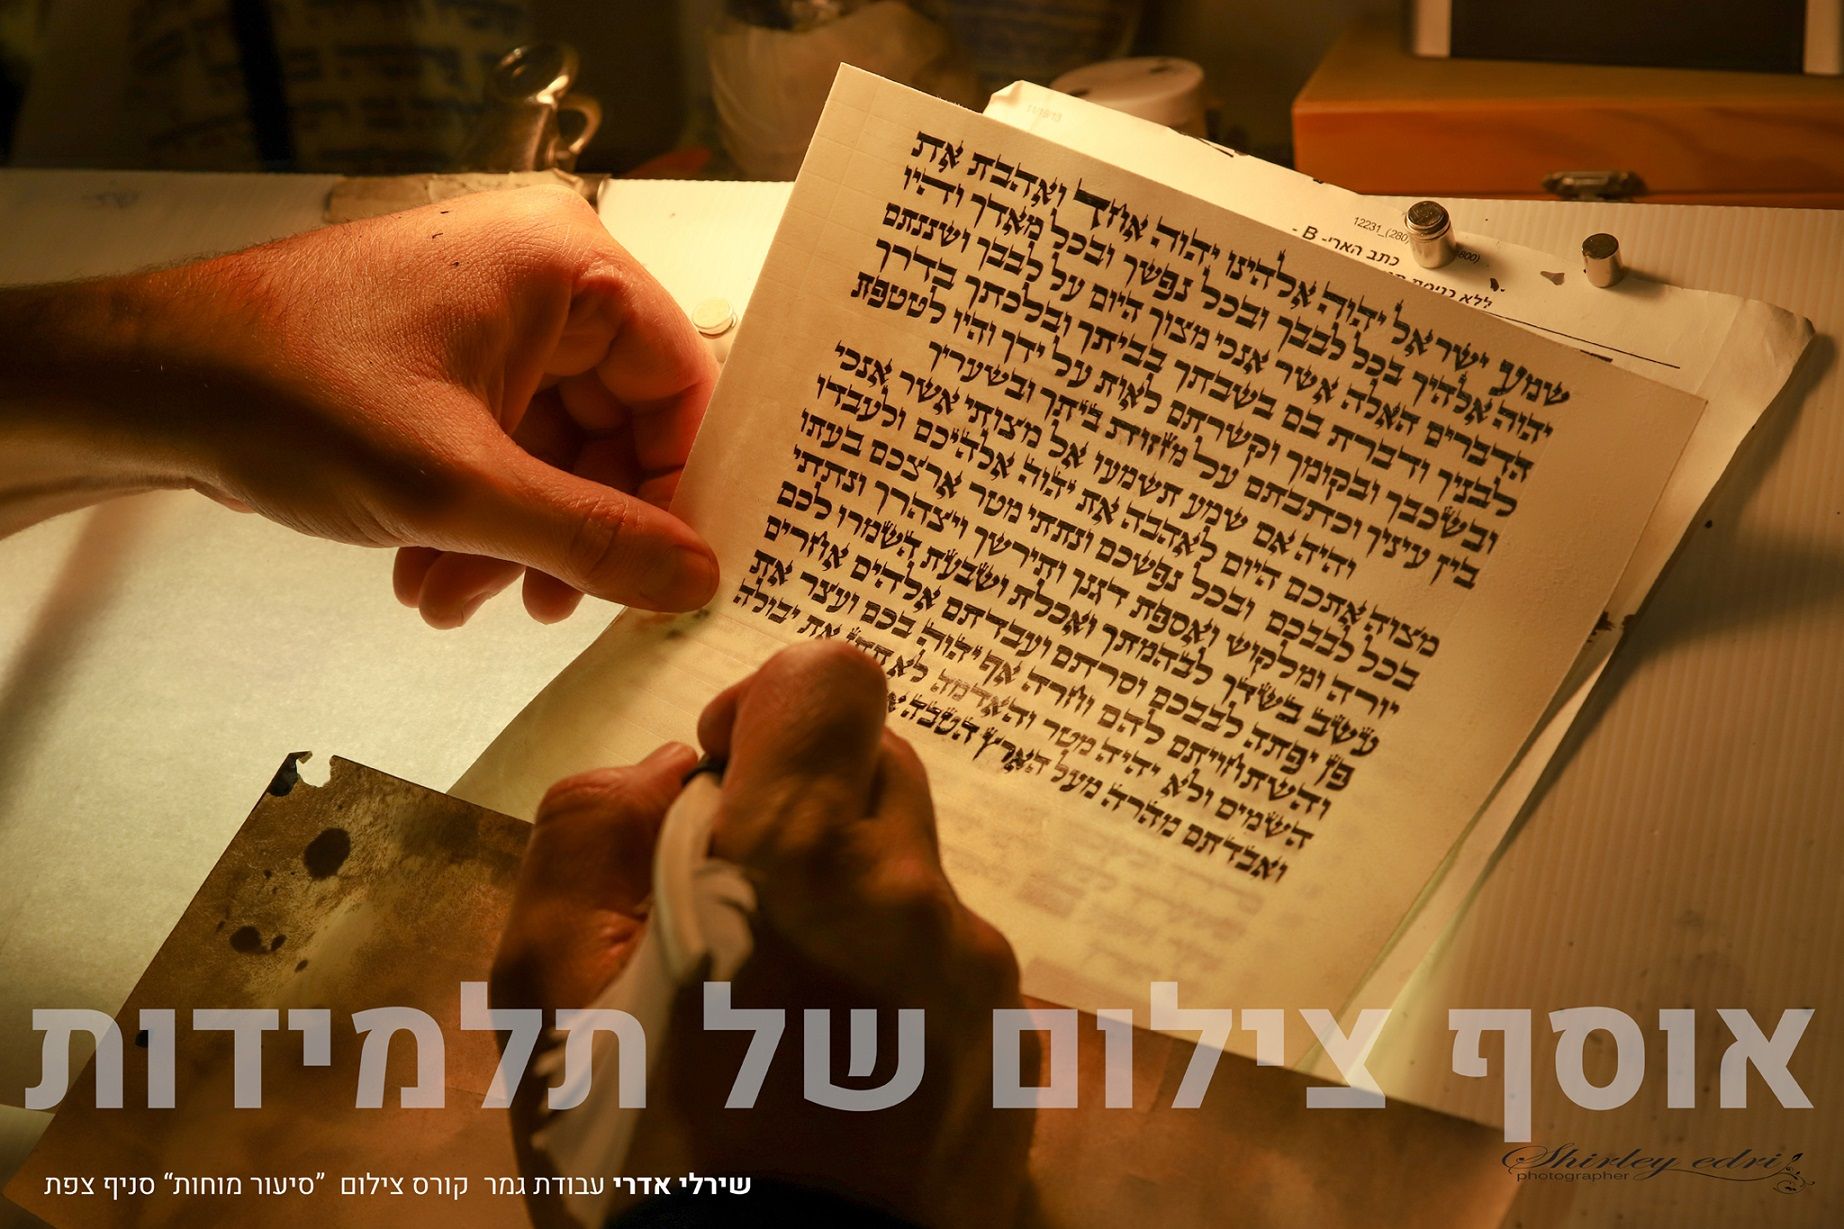 11/19/13
12231_(280)
כתב האר״י - B -
שמע ישראל יהוה אלהינו יהוה אחד ואהבת את
יהוה אלהיך בכל לבבך ובכל נפשך ובכל מאדך והיו
הדברים האלה אשר אנכי מצוך היום על לבבך ושננתם
לבניך ודברת בם בשבתך בביתך ובלכתך בדרך
ובשכבך ובקומך וקשרתם לאות על ידך והיו לטטפת
בין עיניך וכתבתם על מזזות ביתך ובשעריך
והיה אם שמע תשמעו אל מצותי אשר אנכי
מצוה אתכם היום לאהבה את יהוה אלהיכם ולעבדו
בכל לבבכם ובכל נפשכם ונתתי מטר ארצכם בעתו
יורה ומלקוש ואספת דגנך ותירשך ויצהרך ונתתי
עשב בשדך לבהמתך ואכלת ושבעת השמרו לכם
פן יפתה לבבכם וסרתם ועבדתם אלהים אחרים
והשתחויתם להם וחרה אף יהוה בכם ועצר את
השמים ולא יהיה מטר והאדמה לא תתן את יבולה
ואבדתם מהרה מעל הארץ הטבה
אוסף צילום של תלמידות
Shirley edri
photographer
שירלי אדרי עבודת גמר קורס צילום "סיעור מוחות" סניף צפת